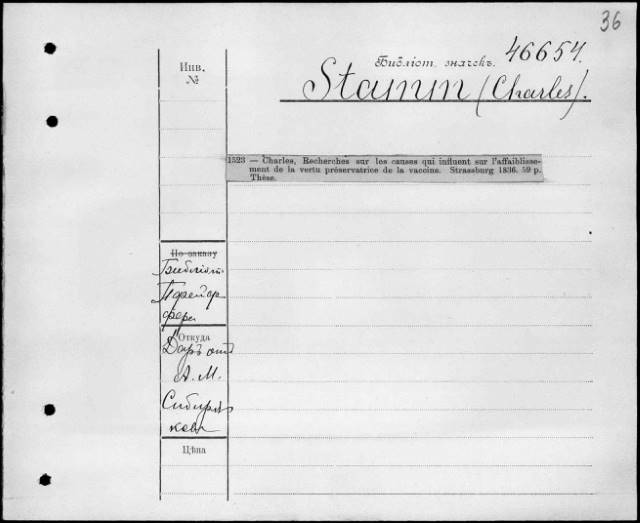 36
Инв.
№
Библіот. значекъ. 46654.
Stamm (Charles).
1523 — Charles, Recherches sur les causes qui influent sur l'affaiblisse-
ment de la vertu préservatrice de la vaccine. Strassburg 1836. 59 p.
Thèse.
По заказу
Библіот.
Пфейф
фера
Откуда
Даръ отъ
А. М.
Сибиря
кова
Цѣна